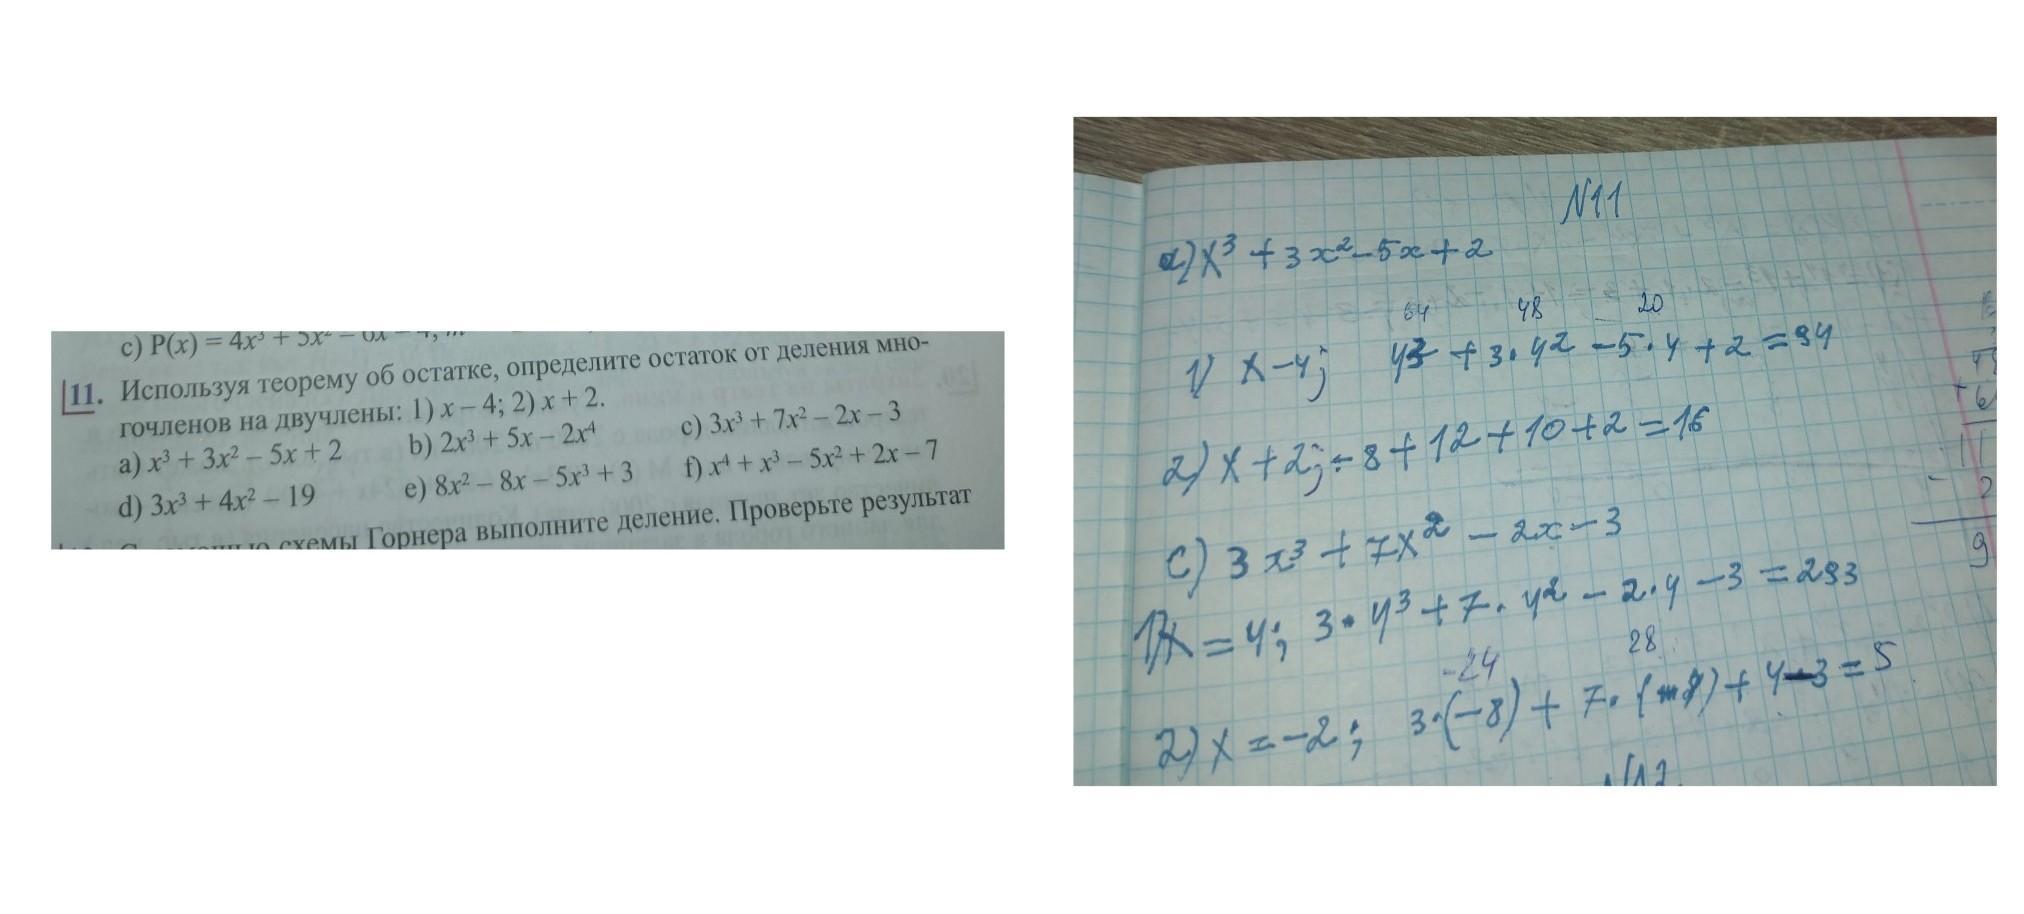 c) P(x) = 4x³ + 5x² − 6x − 4,
11. Используя теорему об остатке, определите остаток от деления мно-
гочленов на двучлены: 1) x – 4; 2) x + 2.
a) x³ + 3x² – 5x + 2 b) 2x³ + 5x – 2x⁴ c) 3x³ + 7x² – 2x – 3
d) 3x³ + 4x² – 19 e) 8x² – 8x – 5x³ + 3 f) x⁴ + x³ – 5x² + 2x – 7
схемы Горнера выполните деление. Проверьте результат
N11
a) x³ + 3x² – 5x + 2
64 48 20
1) x – 4; 4³ + 3·4² – 5·4 + 2 = 94
2) x + 2; – 8 + 12 + 10 + 2 = 16
c) 3x³ + 7x² – 2x – 3
1) x = 4; 3·4³ + 7·4² – 2·4 – 3 = 293
-24 28
2) x = -2; 3·(-8) + 7·(4) + 4 – 3 = 5
N12